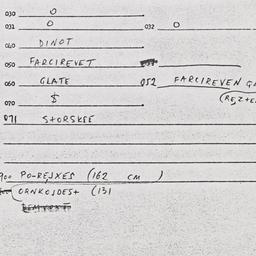 030 O
031 O 032 O
040 DINOT
050 FARCIREVET
060 GLATE 052 FARCIREVEN
070 $
071 STORSKEE
900 PO-REJXES (162 CM )
ORNKOJDES+ (131